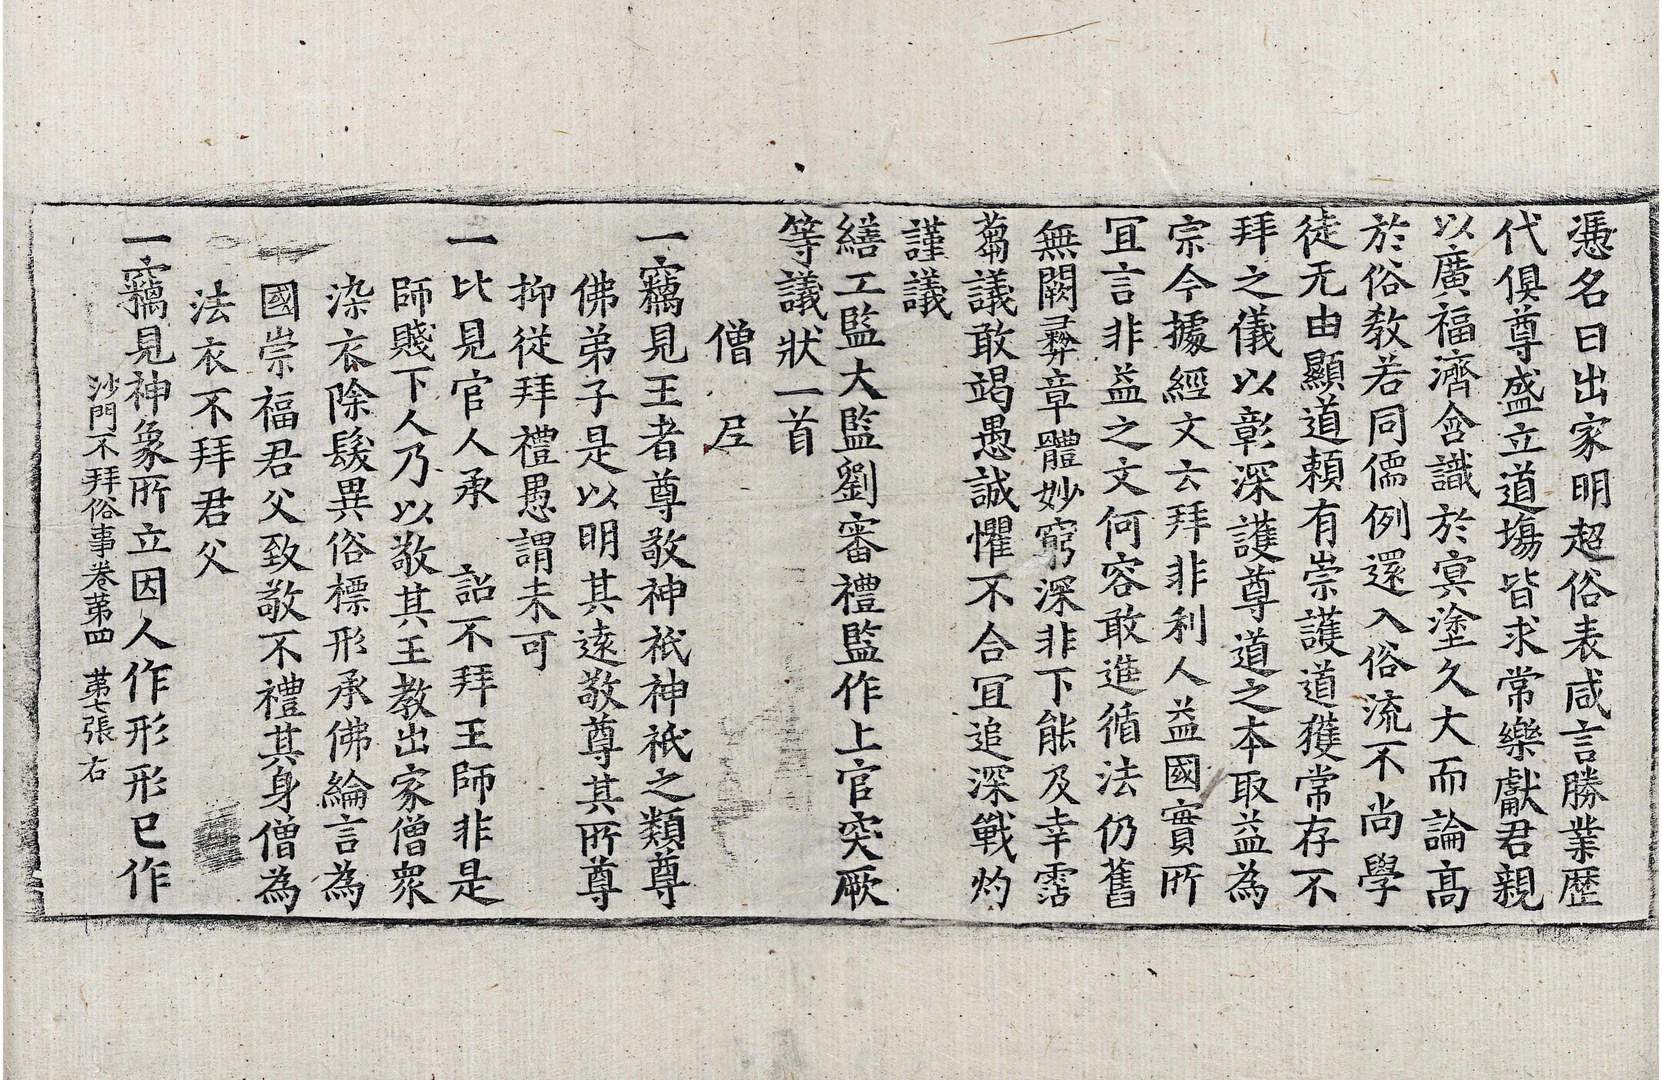 憑名曰出家明超俗表咸言勝業歷
代俱尊盛立道場皆求常樂獻君親
以廣福濟含識於㝠塗久大而論髙
於俗教若同儒例還入俗流不尚學
徒无由顯道頼有崇護道獲常存不
拜之儀以彰深護尊道之本取益為
宗今據經文云拜非利人益國實所
冝言非益之文何容敢進循法仍舊
無闕彛章體妙窮深非下能及幸霑
蒭議敢竭愚誠懼不合冝追深戰灼
謹議
繕工監大監劉審禮監作上官突厥
等議狀一首
僧 𡰱
一竊見王者尊敬神祇神祇之類尊
佛弟子是以明其遠敬尊其所尊
抑從拜禮愚謂未可
一比見官人承 詔不拜王師非是
師賤下人乃以敬其王教出家僧衆
染衣除髮異俗標形承佛綸言為
國崇福君父致敬不禮其身僧為
法衣不拜君父
一竊見神象所立因人作形形已作
沙門不拜俗事卷第四 第七張 右